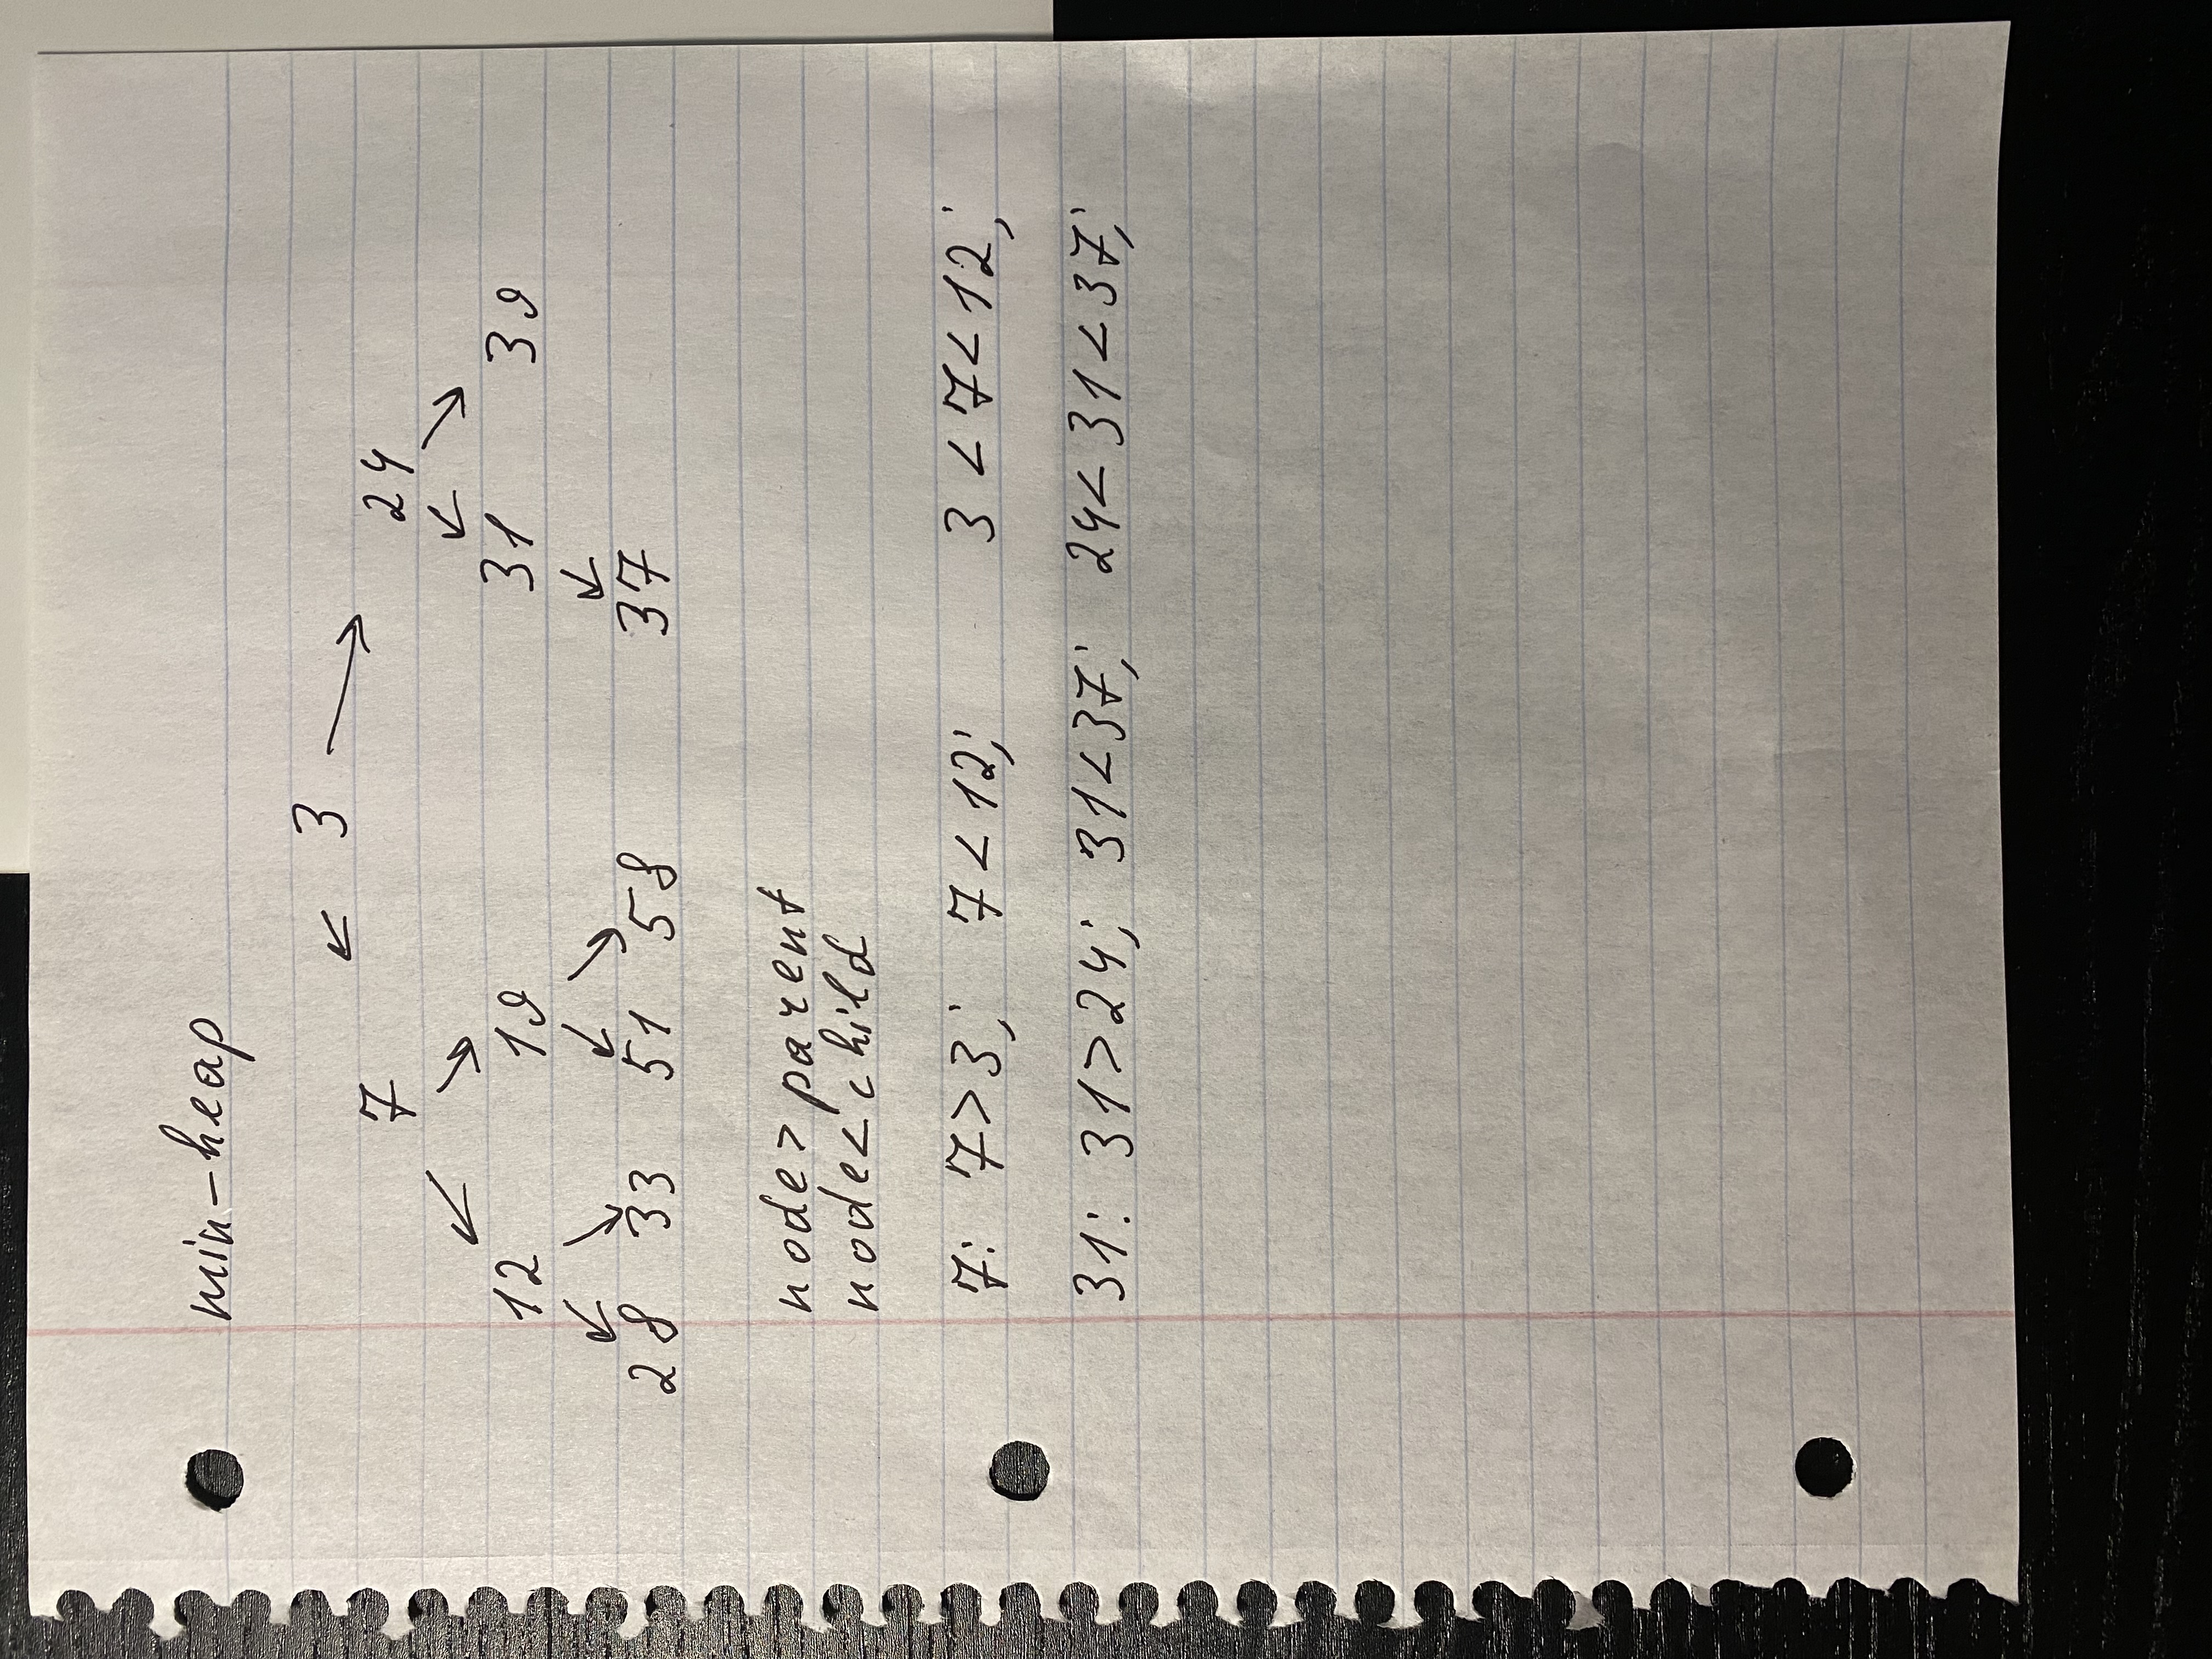 min-heap
3
7 24
12 19 31 39
28 33 51 58 37
node > parent
node < child
7: 7 > 3; 7 < 12; 3 < 7 < 12;
31: 31 > 24; 31 < 37; 24 < 31 < 37;